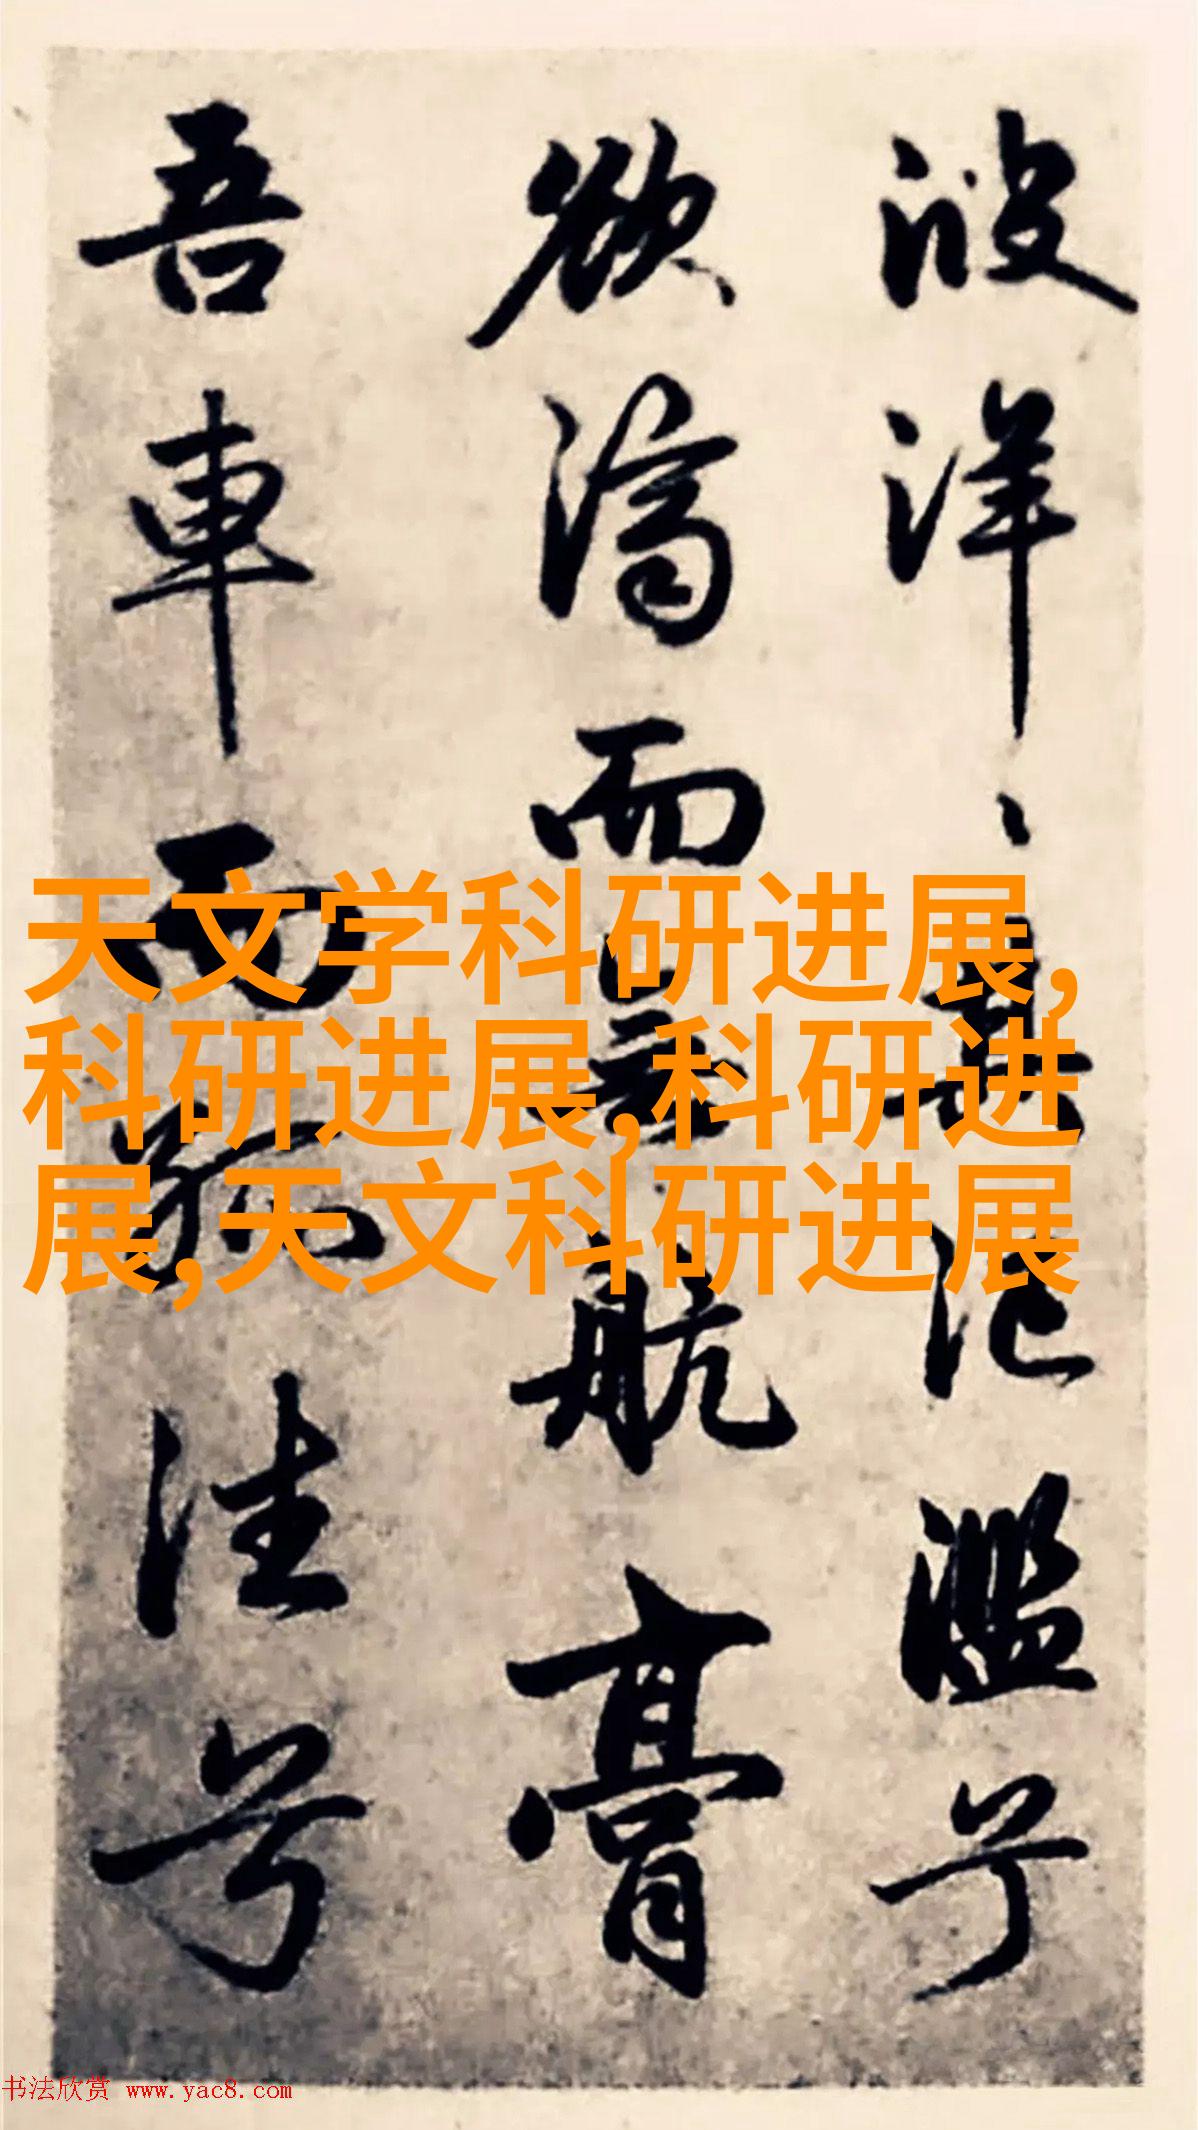 波洋〻其氾濫兮
欲濟而無航膏
吾車而往兮
天文学科研进展,
科研进展,科研进
展,天文科研进展
书法欣赏 www.yac8.com